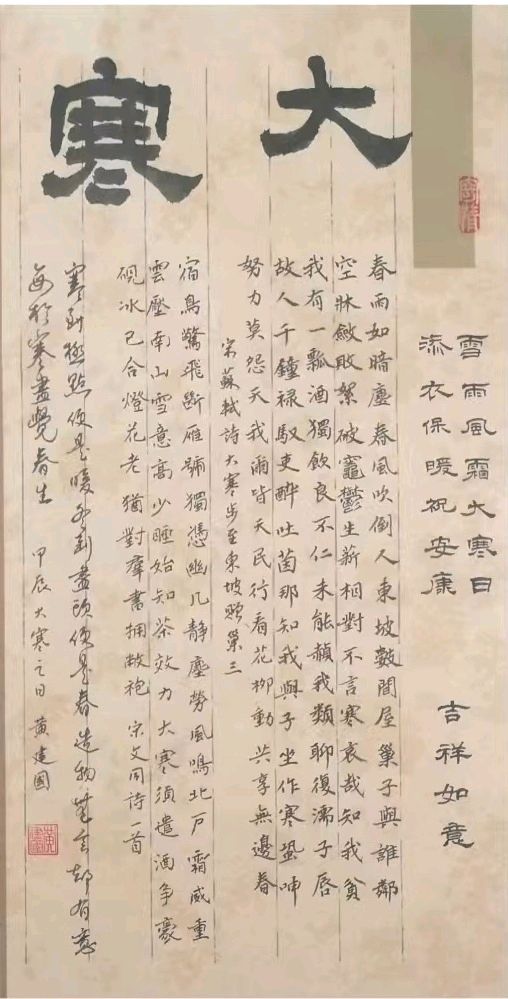 大寒
雪雨風霜大寒日
添衣保暖祝安康
吉祥如意
春雨如暗塵春風吹倒人東坡數間屋巢子與誰鄰
空牀斂敗絮破竈鬱生薪相對不言寒哀哉知我貧
我有一瓢酒獨飲良不仁未能赬我類聊復濡子唇
故人千鐘禄馭吏醉吐茵那知我與子坐作寒蛩呻
努力莫怨天我爾皆天民行看花柳動共享無邊春
宋蘇軾詩大寒步至東坡贈巢三
宿鳥驚飛斷雁號獨憑幽几靜塵勞風鳴北戶霜威重
雲壓南山雪意高少睡始知茶效力大寒須遣酒爭豪
硯冰已合燈花老猶對羣書擁敝袍 宋文同詩一首
寒到極點便是暖冬到盡頭便是春造物無言却有意
每於寒盡覺春生 甲辰大寒之日 黄建國